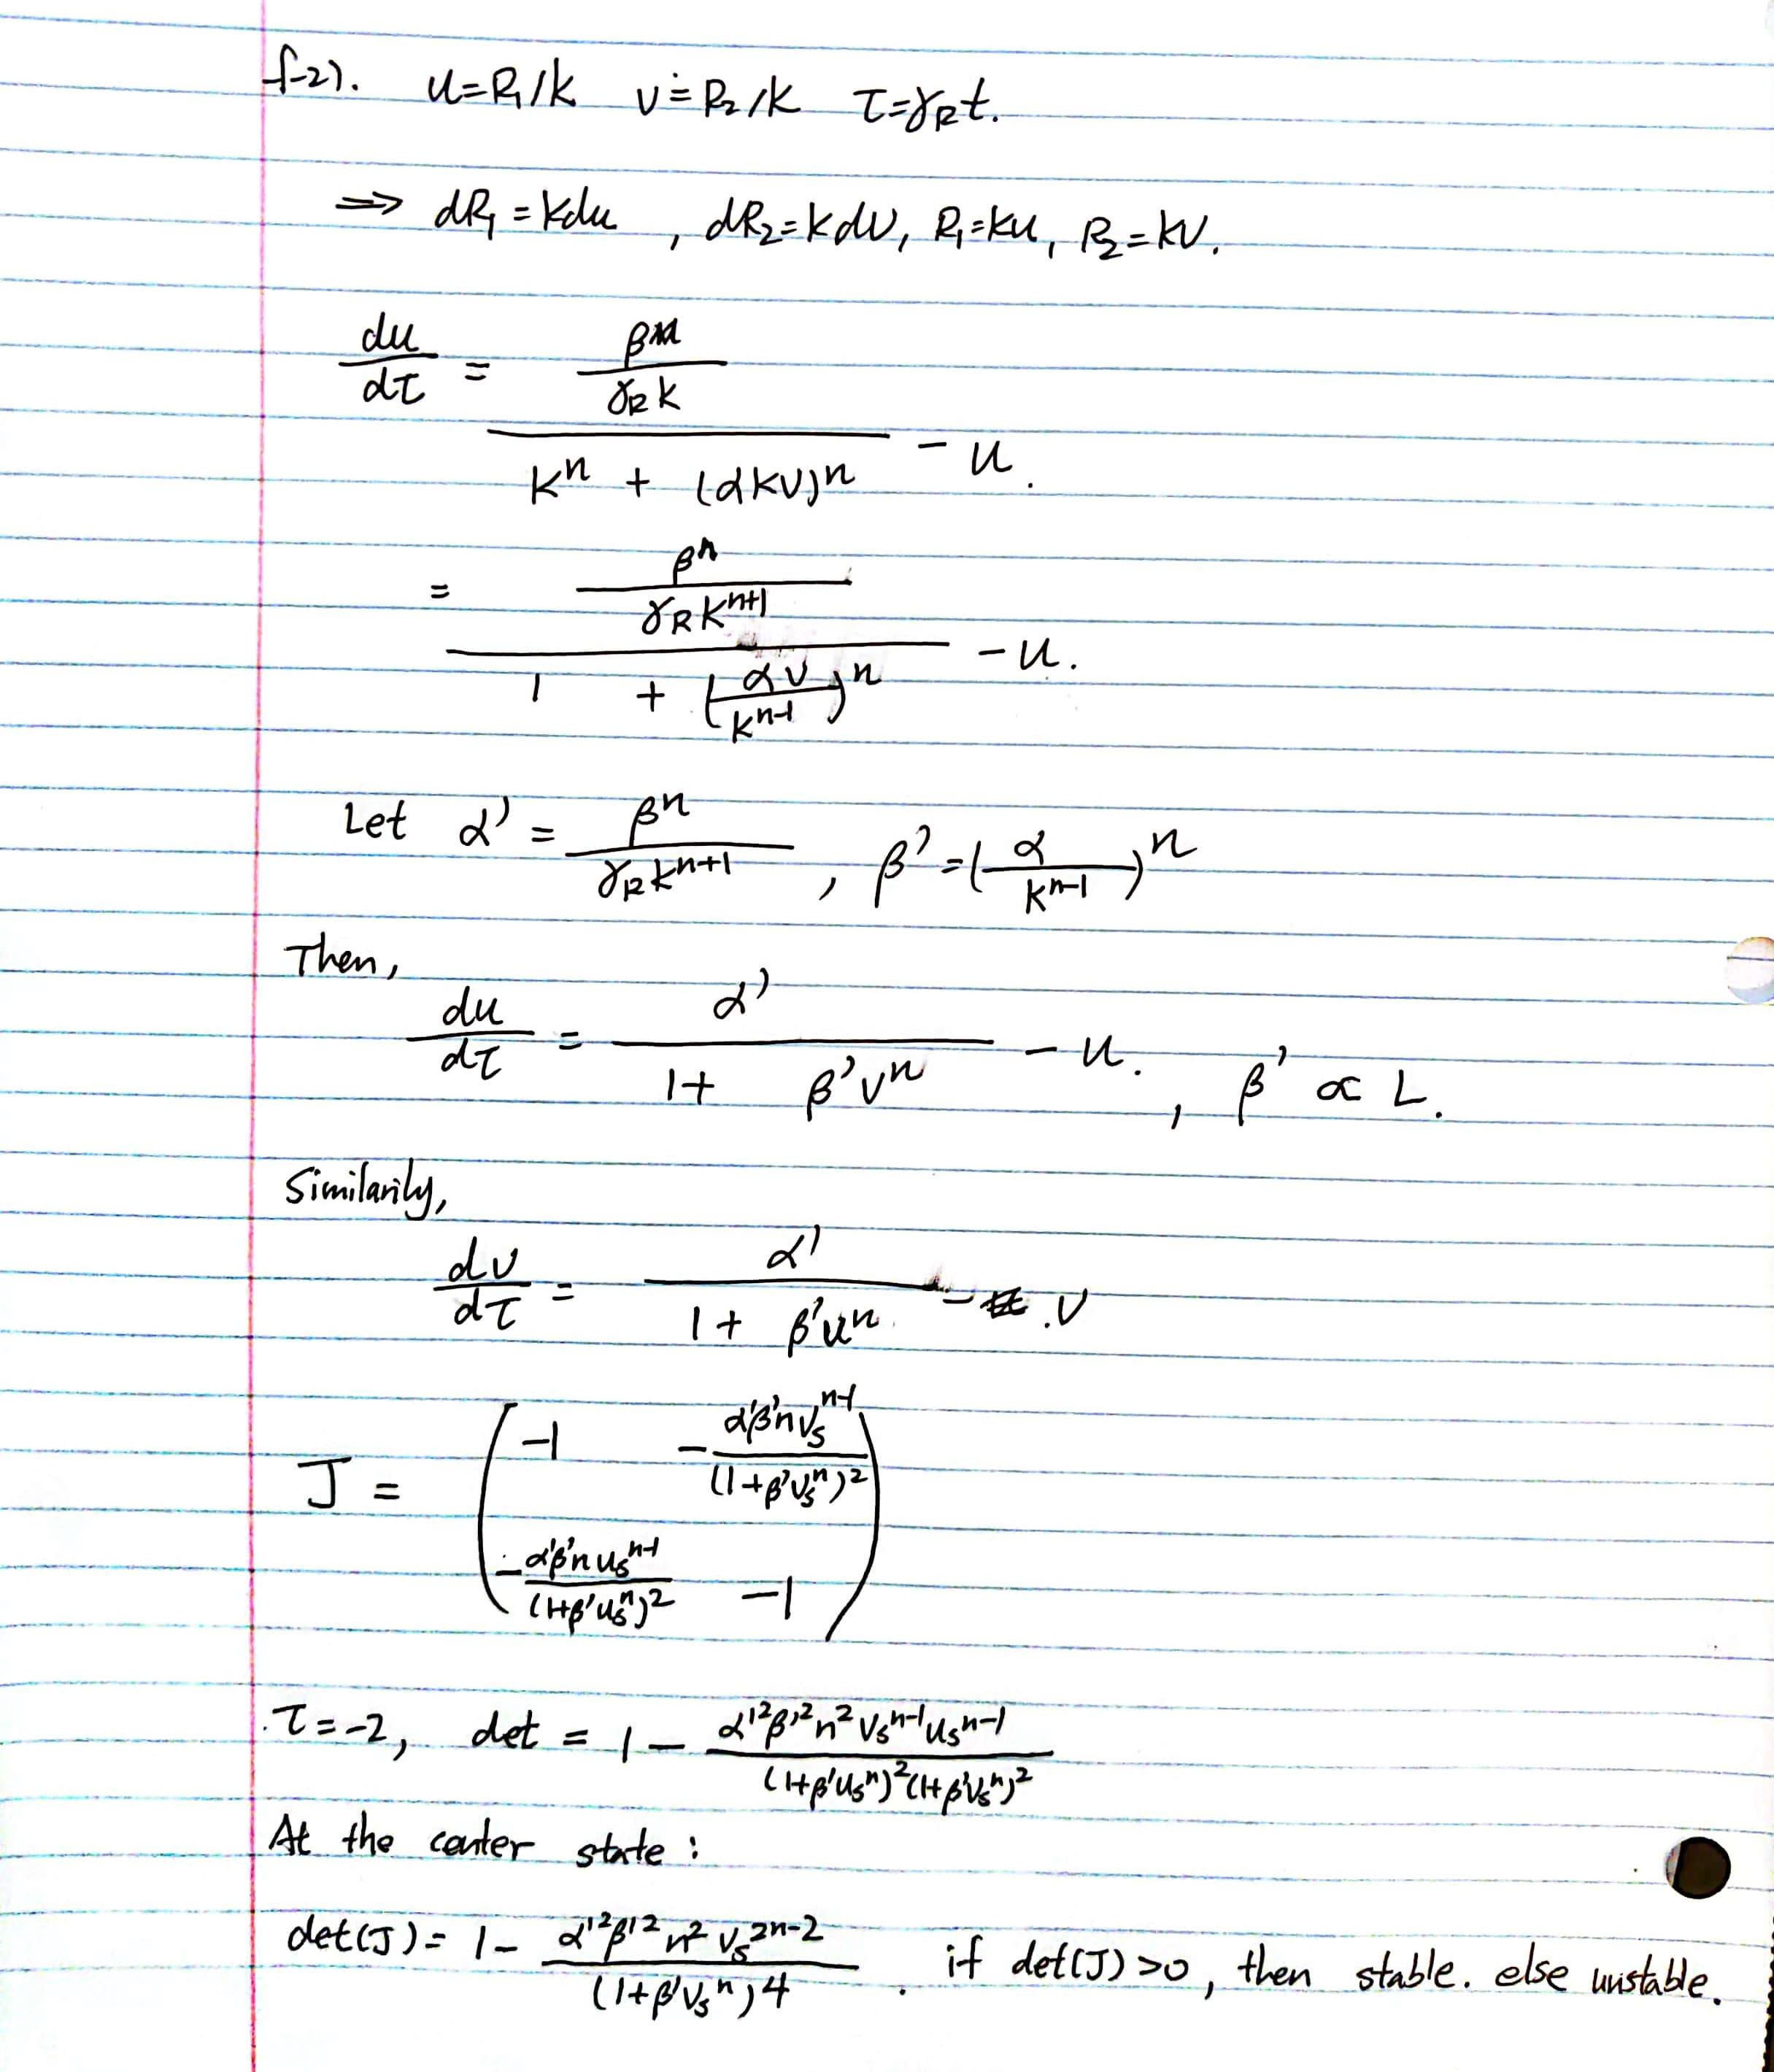 f-2). u=R₁/k v=R₂/k τ=γ_R t.
⇒ dR₁=kdu , dR₂=kdv, R₁=ku, R₂=kv.
du/dτ = (βⁿ/(γ_R k))/(kⁿ + (αkv)ⁿ) - u.
= (βⁿ/(γ_R kⁿ⁺¹))/(1 + (αv/kⁿ⁻¹)ⁿ) - u.
Let α' = βⁿ/(γ_R kⁿ⁺¹) , β' = (α/kⁿ⁻¹)ⁿ
Then,
du/dτ = α'/(1+ β'vⁿ) - u. , β' ∝ L.
Similarily,
dv/dτ = α'/(1+ β'uⁿ) - v
J = ( -1 -α'β'nv_sⁿ⁻¹/(1+β'v_sⁿ)²
-α'β'nu_sⁿ⁻¹/(1+β'u_sⁿ)² -1 )
τ=-2, det = 1 - α'²β'²n²v_sⁿ⁻¹u_sⁿ⁻¹/((1+β'u_sⁿ)²(1+β'v_sⁿ)²)
At the center state :
det(J) = 1- α'²β'²n²v_s²ⁿ⁻²/(1+β'v_sⁿ)⁴ . if det(J)>0, then stable. else unstable.